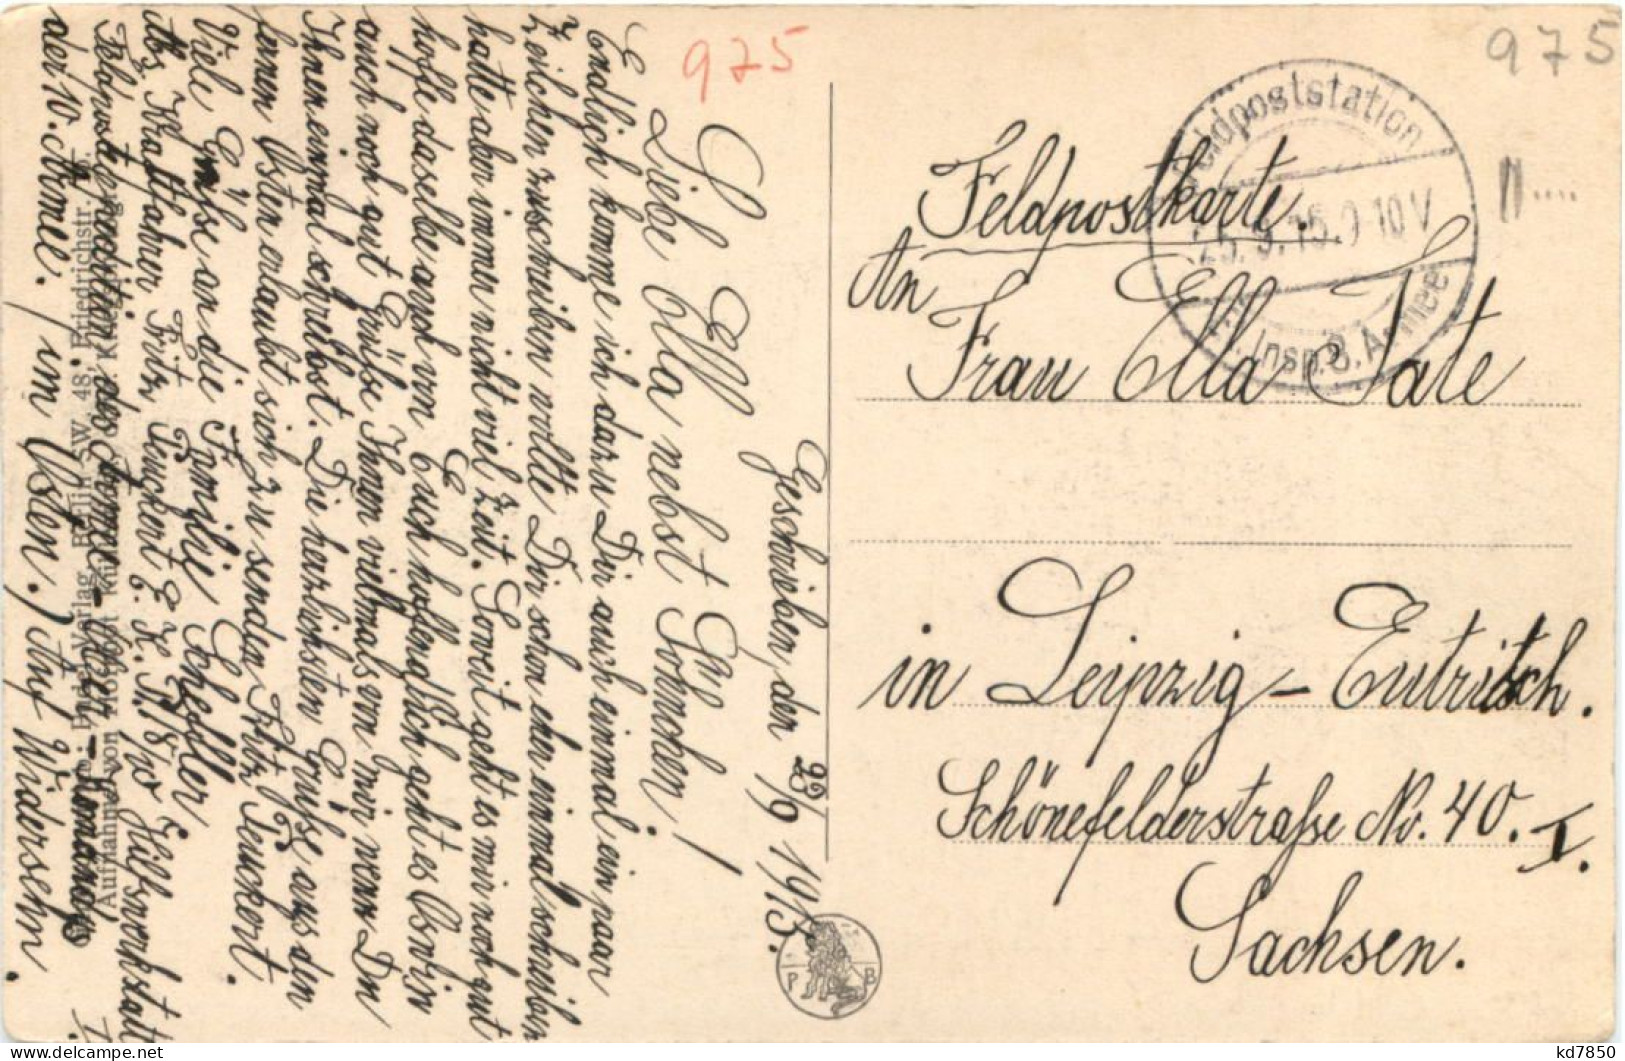 975
975
Feldpoststation
25.9.15.9-10V
Insp. 8. Armee
Feldpostkarte.
An
Frau Ella Tate
in Leipzig-Eutritsch.
Schönefelderstraße No. 40. I.
Sachsen.
P B
Geschrieben, den 23/9 1915.
Liebe Ella nebst Söhnchen!
Endlich komme ich dazu Dir auch einmal ein paar
Zeilchen zuschreiben wollte Dir schon eher einmal schreiben
hatte aber immer nicht viel Zeit. Soweit geht es mir noch gut
hoffe dasselbe auch von Euch hoffendlich geht es
auch noch gut Grüße Ihnen vielmals von mir wenn Du
Ihnen einmal schreibst. Die herzlichsten Grüße aus den
fernen Osten erlaubt sich zu senden Fritz Peuckert.
Viele Grüße an die Familie Schedler
Kraftfahrer Fritz Peuckert E.K.P. 18/10 Hilfswerkstatt
Feldpostexpedition des
der 10. Armee. im Osten.) Auf Widersehn.
Verlag, Berlin SW. 48, Friedrichstr.
Aufnahme von